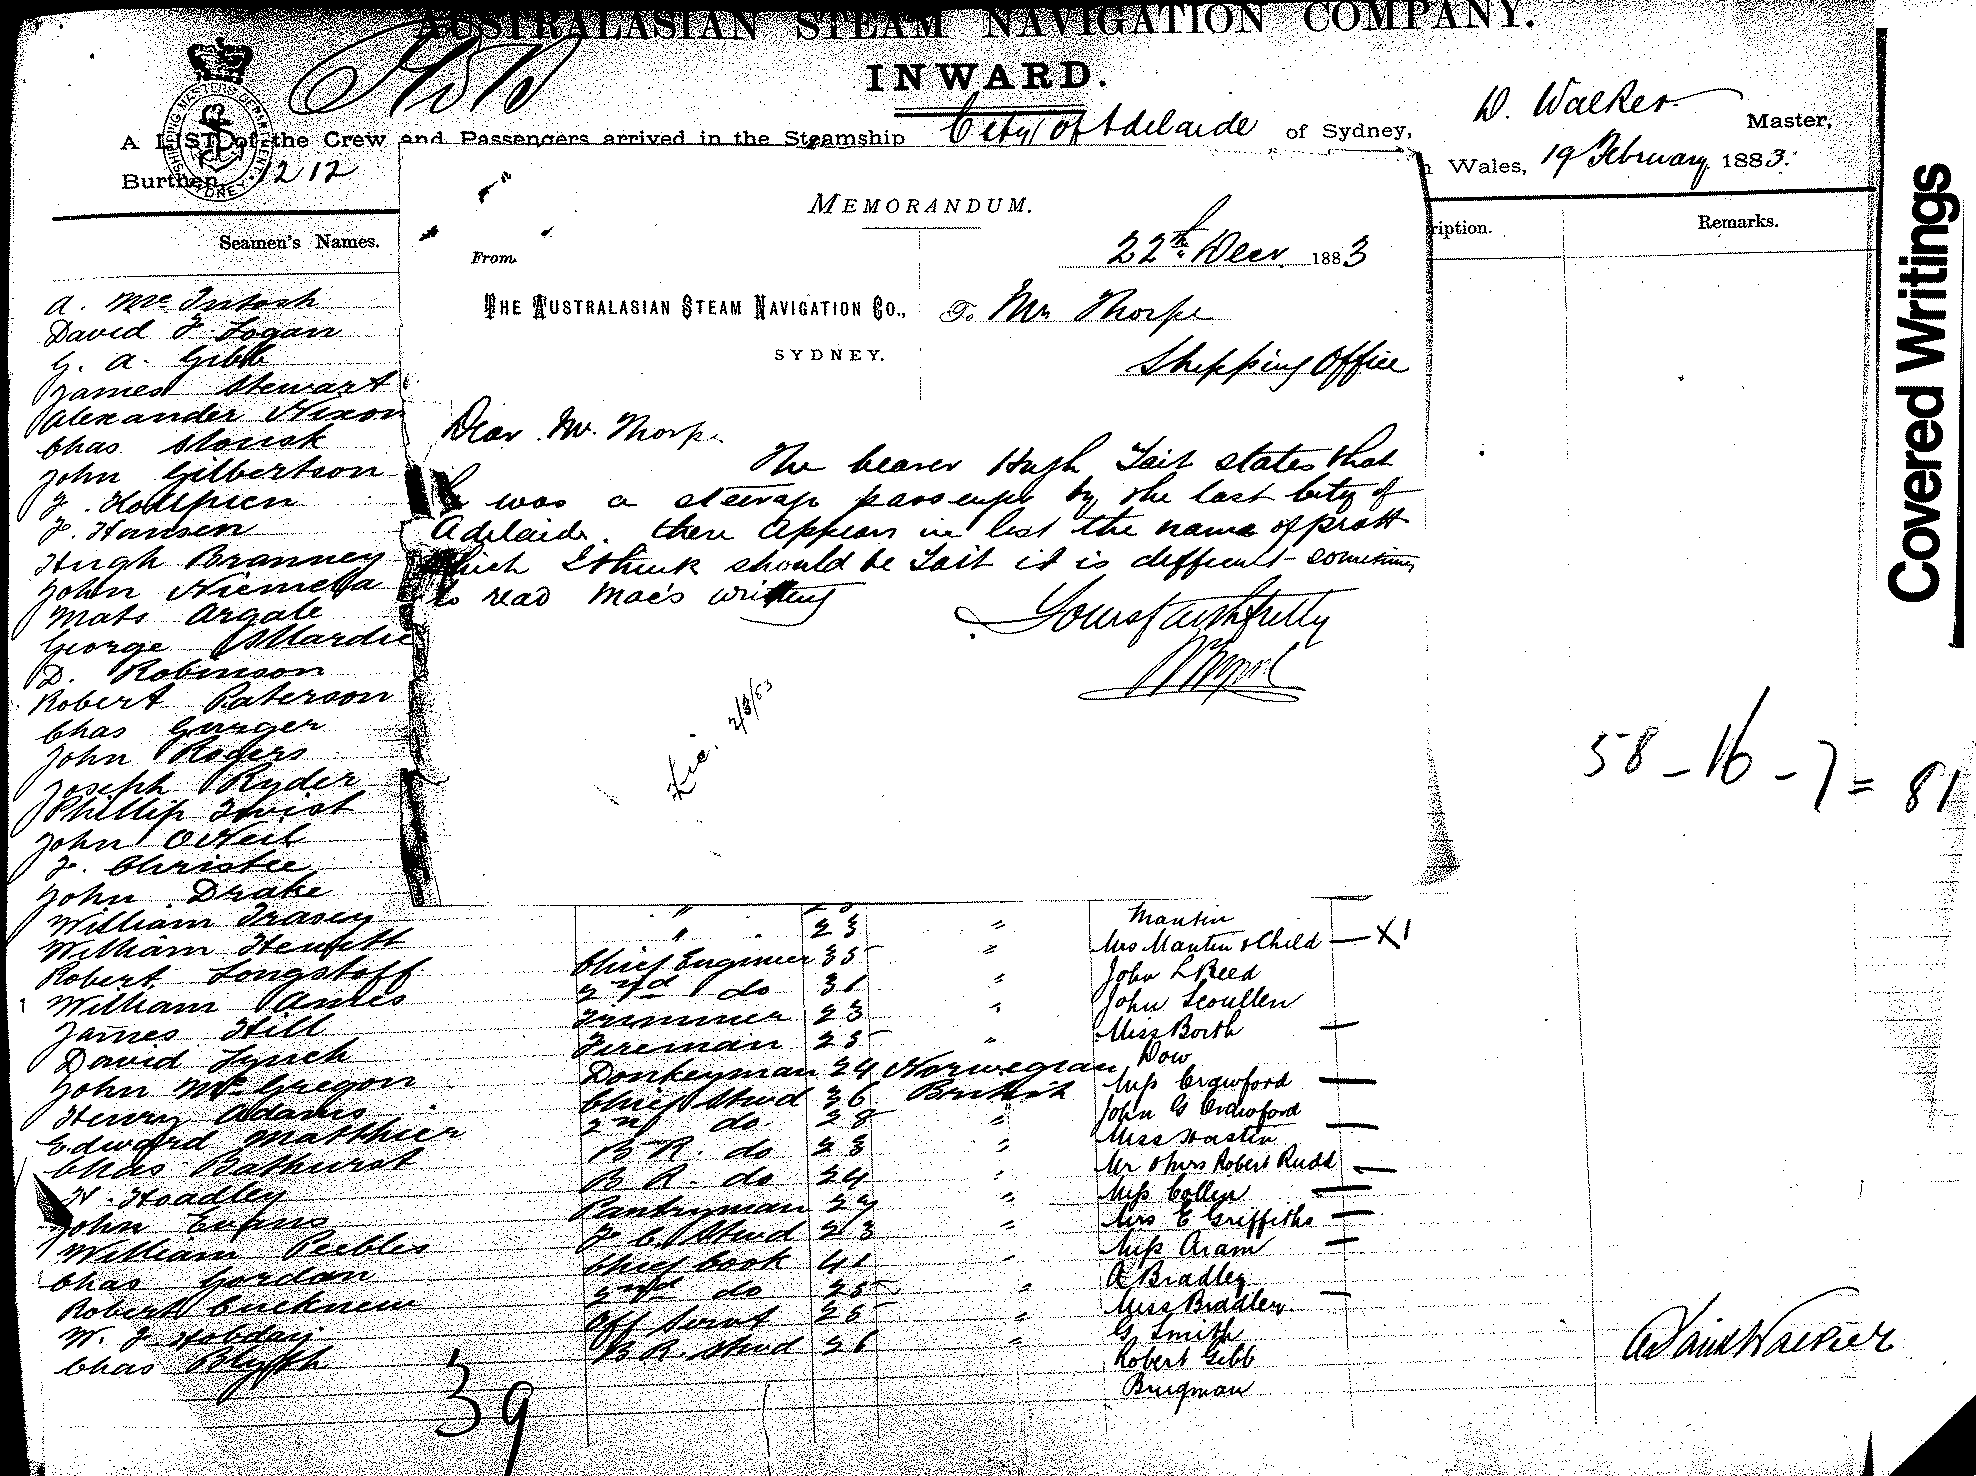 AUSTRALASIAN STEAM NAVIGATION COMPANY.
INWARD.
A LIST of the Crew and Passengers arrived in the Steamship City of Adelaide of Sydney, D. Walker Master,
Burthen 1212
Wales, 19 February 1883.
Seamen's Names.
ription.
Remarks.
Covered Writings
MEMORANDUM.
22nd Decr. 1883
From
THE AUSTRALASIAN STEAM NAVIGATION CO.,
SYDNEY.
To Mr Thorpe
Shipping Office
Dear Mr. Thorpe
The bearer Hugh Tait states that
he was a steerage passenger by the last City of
Adelaide. there appears in list the name of Pratt
which I think should be Tait it is difficult sometimes
to read Mac's writing
Yours faithfully
2/3/83
A. McIntosh
David F. Logan
G. A. Gibb
James Stewart
Alexander Nixon
Chas
John Gilbertson
F. Hansen
Hugh Branney
John Niemela
Mats Argale
George
D. Robinson
Robert Paterson
Chas Gurger
John Rogers
Joseph Ryder
Phillip Twist
John O'Neil
F. Christie
John Drake
58 - 16 - 7 = 81
William Trasey " 23 " Mantin
William Hewett Chief Engineer 35 " Mrs Mantin & Child — X1
Robert Longstaff 2nd do 31 " John L Reed
William Amies Trimmer 23 " John Scoullen
James Hill Fireman 25 " Miss Borth
David Lynch Donkeyman 24 Norwegian Dow
John McGregor Chief Stwd 36 British Miss Crawford
Henry Adams 2nd do 28 " John G Crawford
Edward Matthier B. R. do 23 " Miss
Chas Bathurst B. R. do 24 " Mr & Mrs Robert Rudd
H. Hoadley Pantryman 27 " Miss Collin
John Evans F. C. Stwd 23 " Mrs E Griffiths
William Peebles Chief Cook 41 " Miss Aram
Chas Gordon 2nd do 25 " A Bradley
Robert Off Servt 25 " Miss Bradley
W. J. Hobday B R. Stwd 26 " G Smith
Chas Blyth Robert Gibb
Brugman
39
David Walker